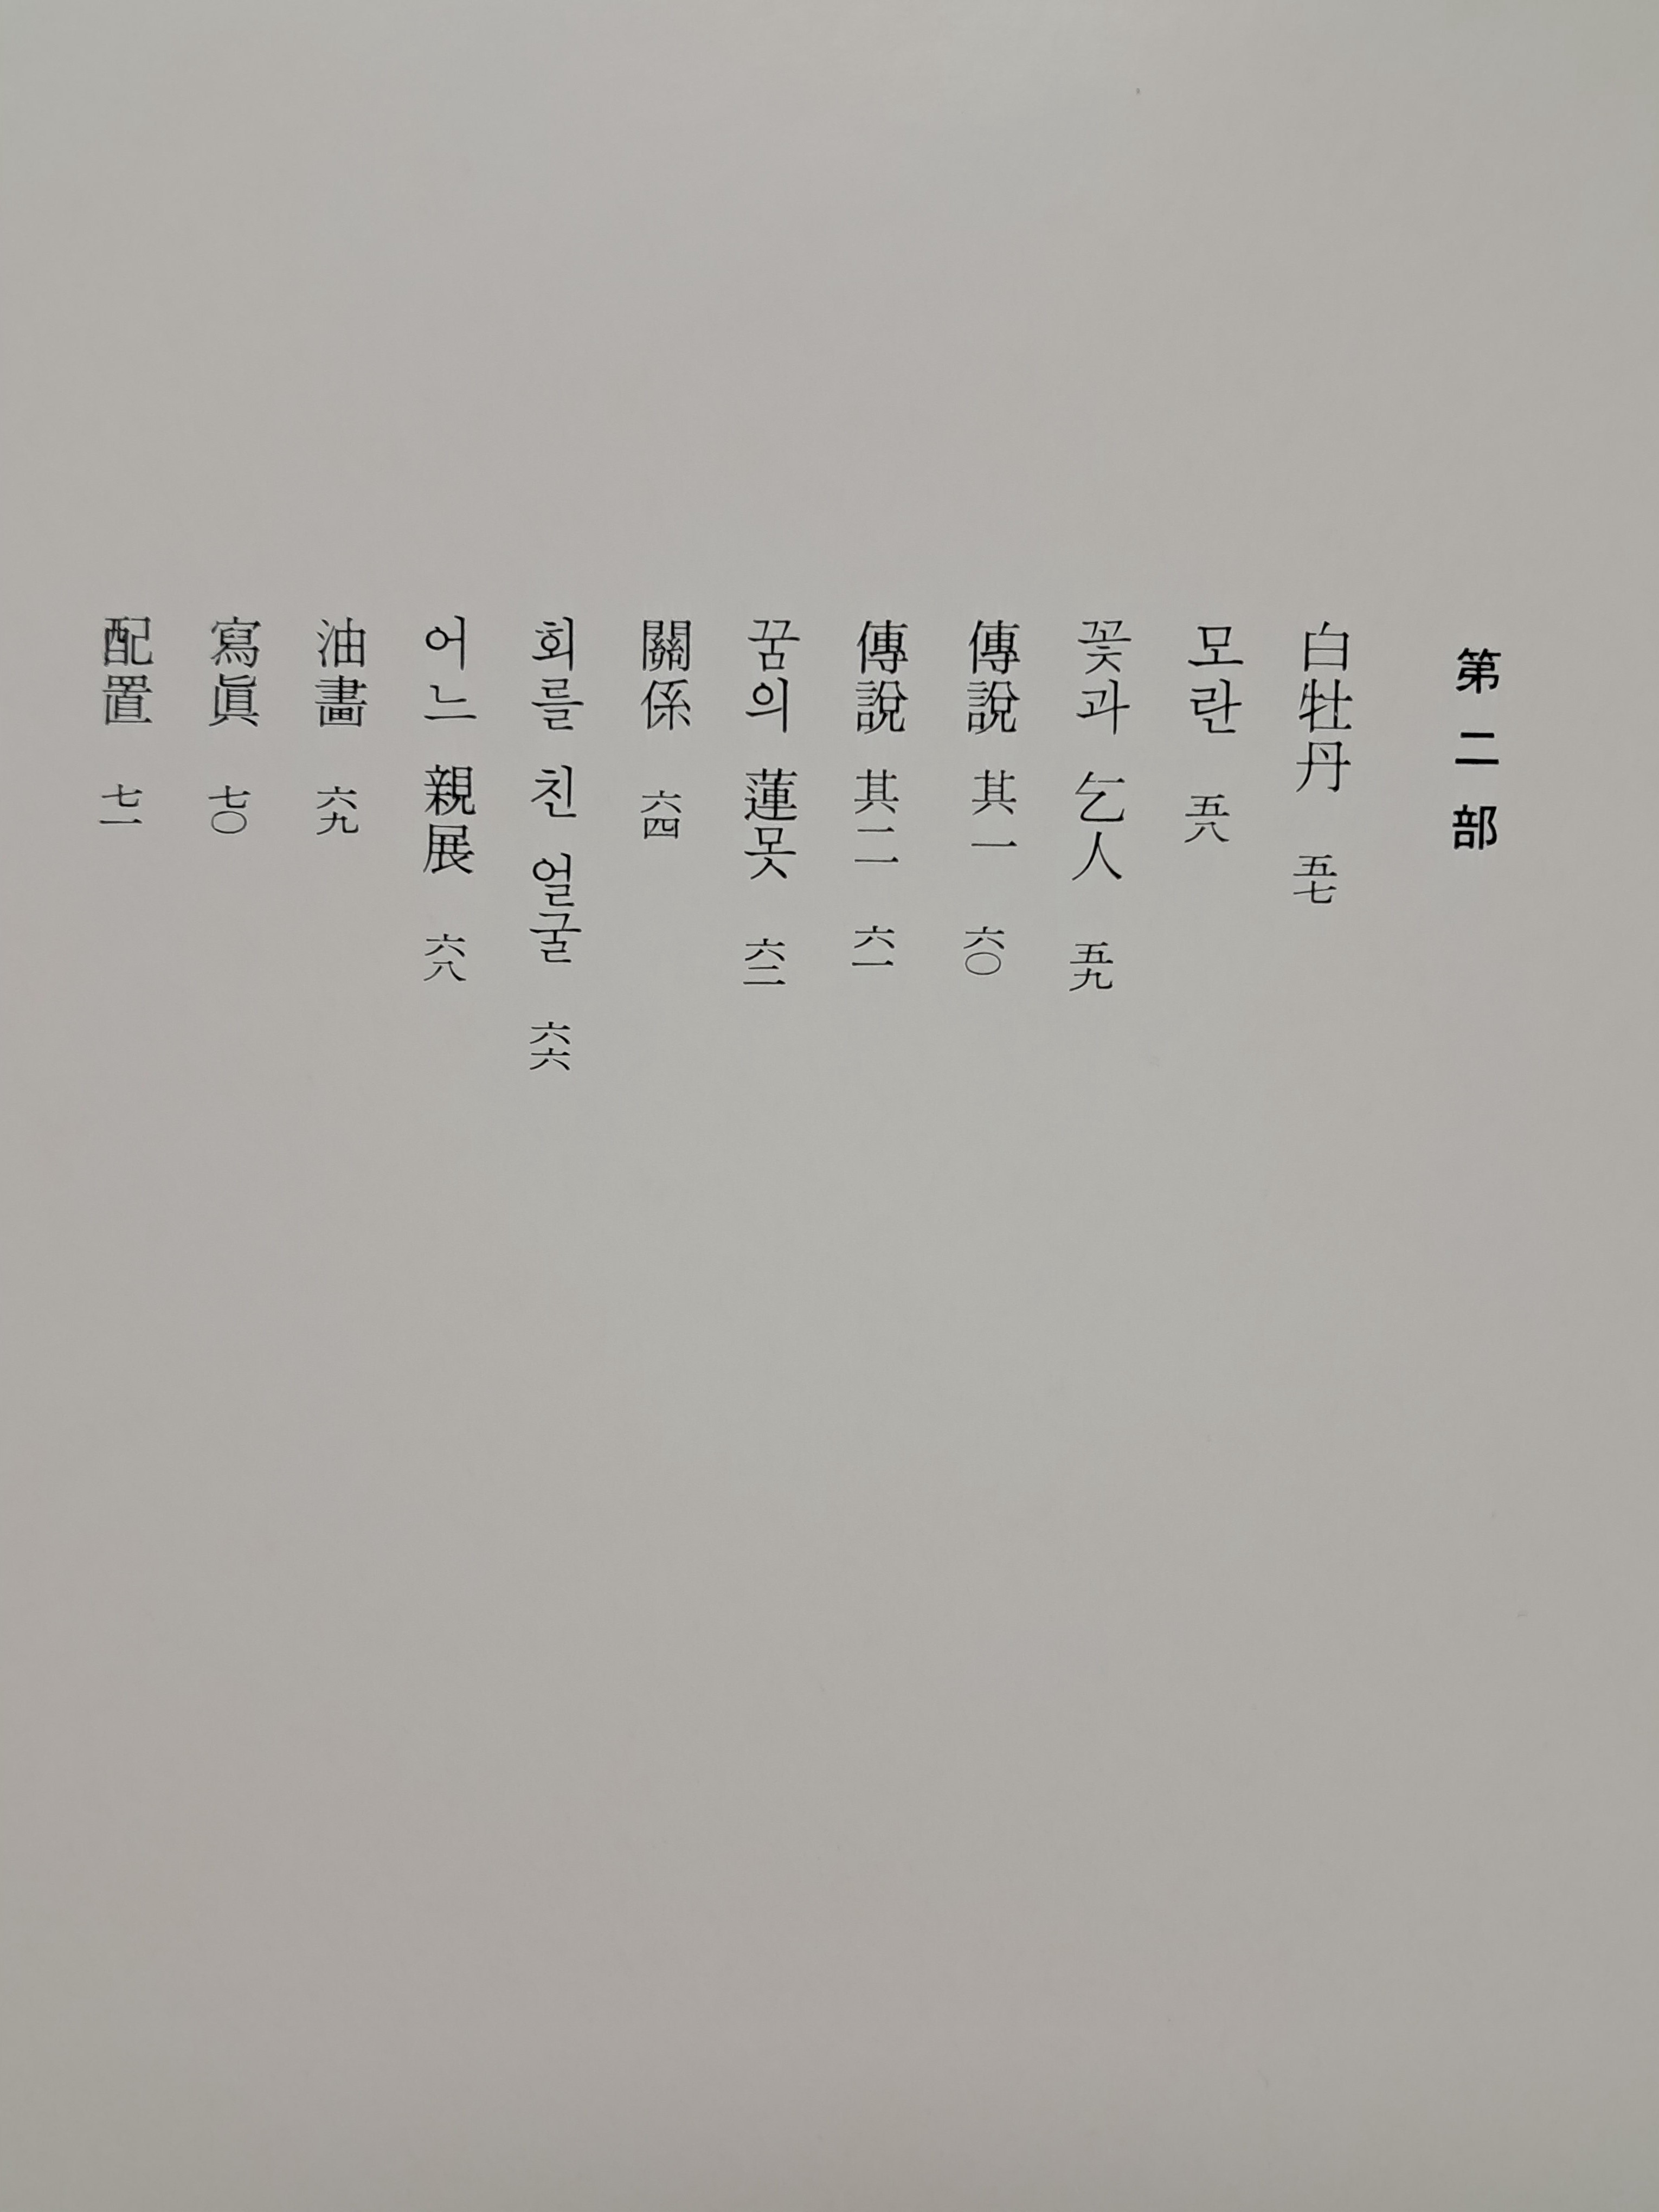 第二部
白牡丹 五七
모란 五八
꽃과 乞人 五九
傳說 其一 六〇
傳說 其二 六一
꿈의 蓮못 六二
關係 六四
회를 친 얼굴 六六
어느 親展 六八
油畵 六九
寫眞 七〇
配置 七一